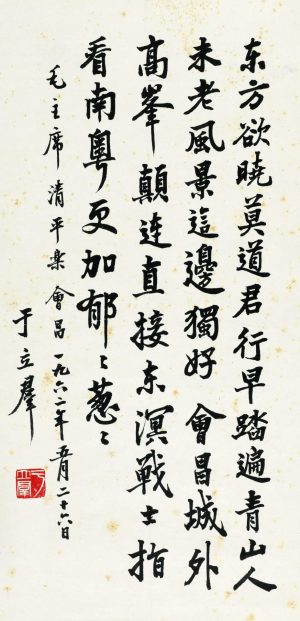 东方欲晓莫道君行早踏遍青山人
未老風景這邊獨好 會昌城外
高峯顛连直接东溟戰士指
看南粤更加郁々葱々
毛主席清平樂會昌一九六二年五月二十六日
于立羣